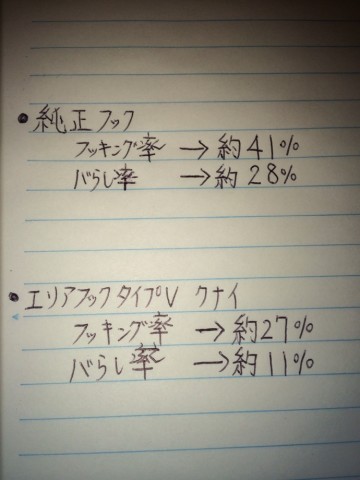 ●純正フック
フッキング率→約41%
バらし率→約28%
●エリアフックタイプV クナイ
フッキング率→約27%
バらし率→約11%